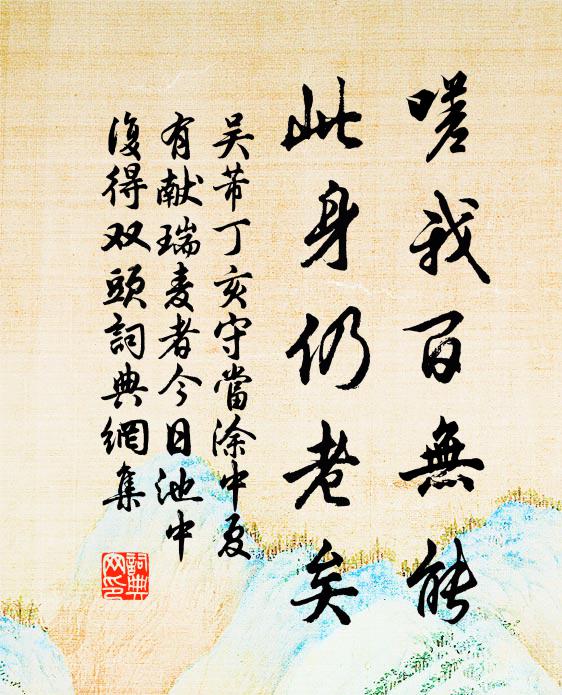 嗟我百無能
此身仍老矣
吴芾丁亥守當涂中夏
有献瑞麦者今日池中
復得双頭詞典網集
詞典網印